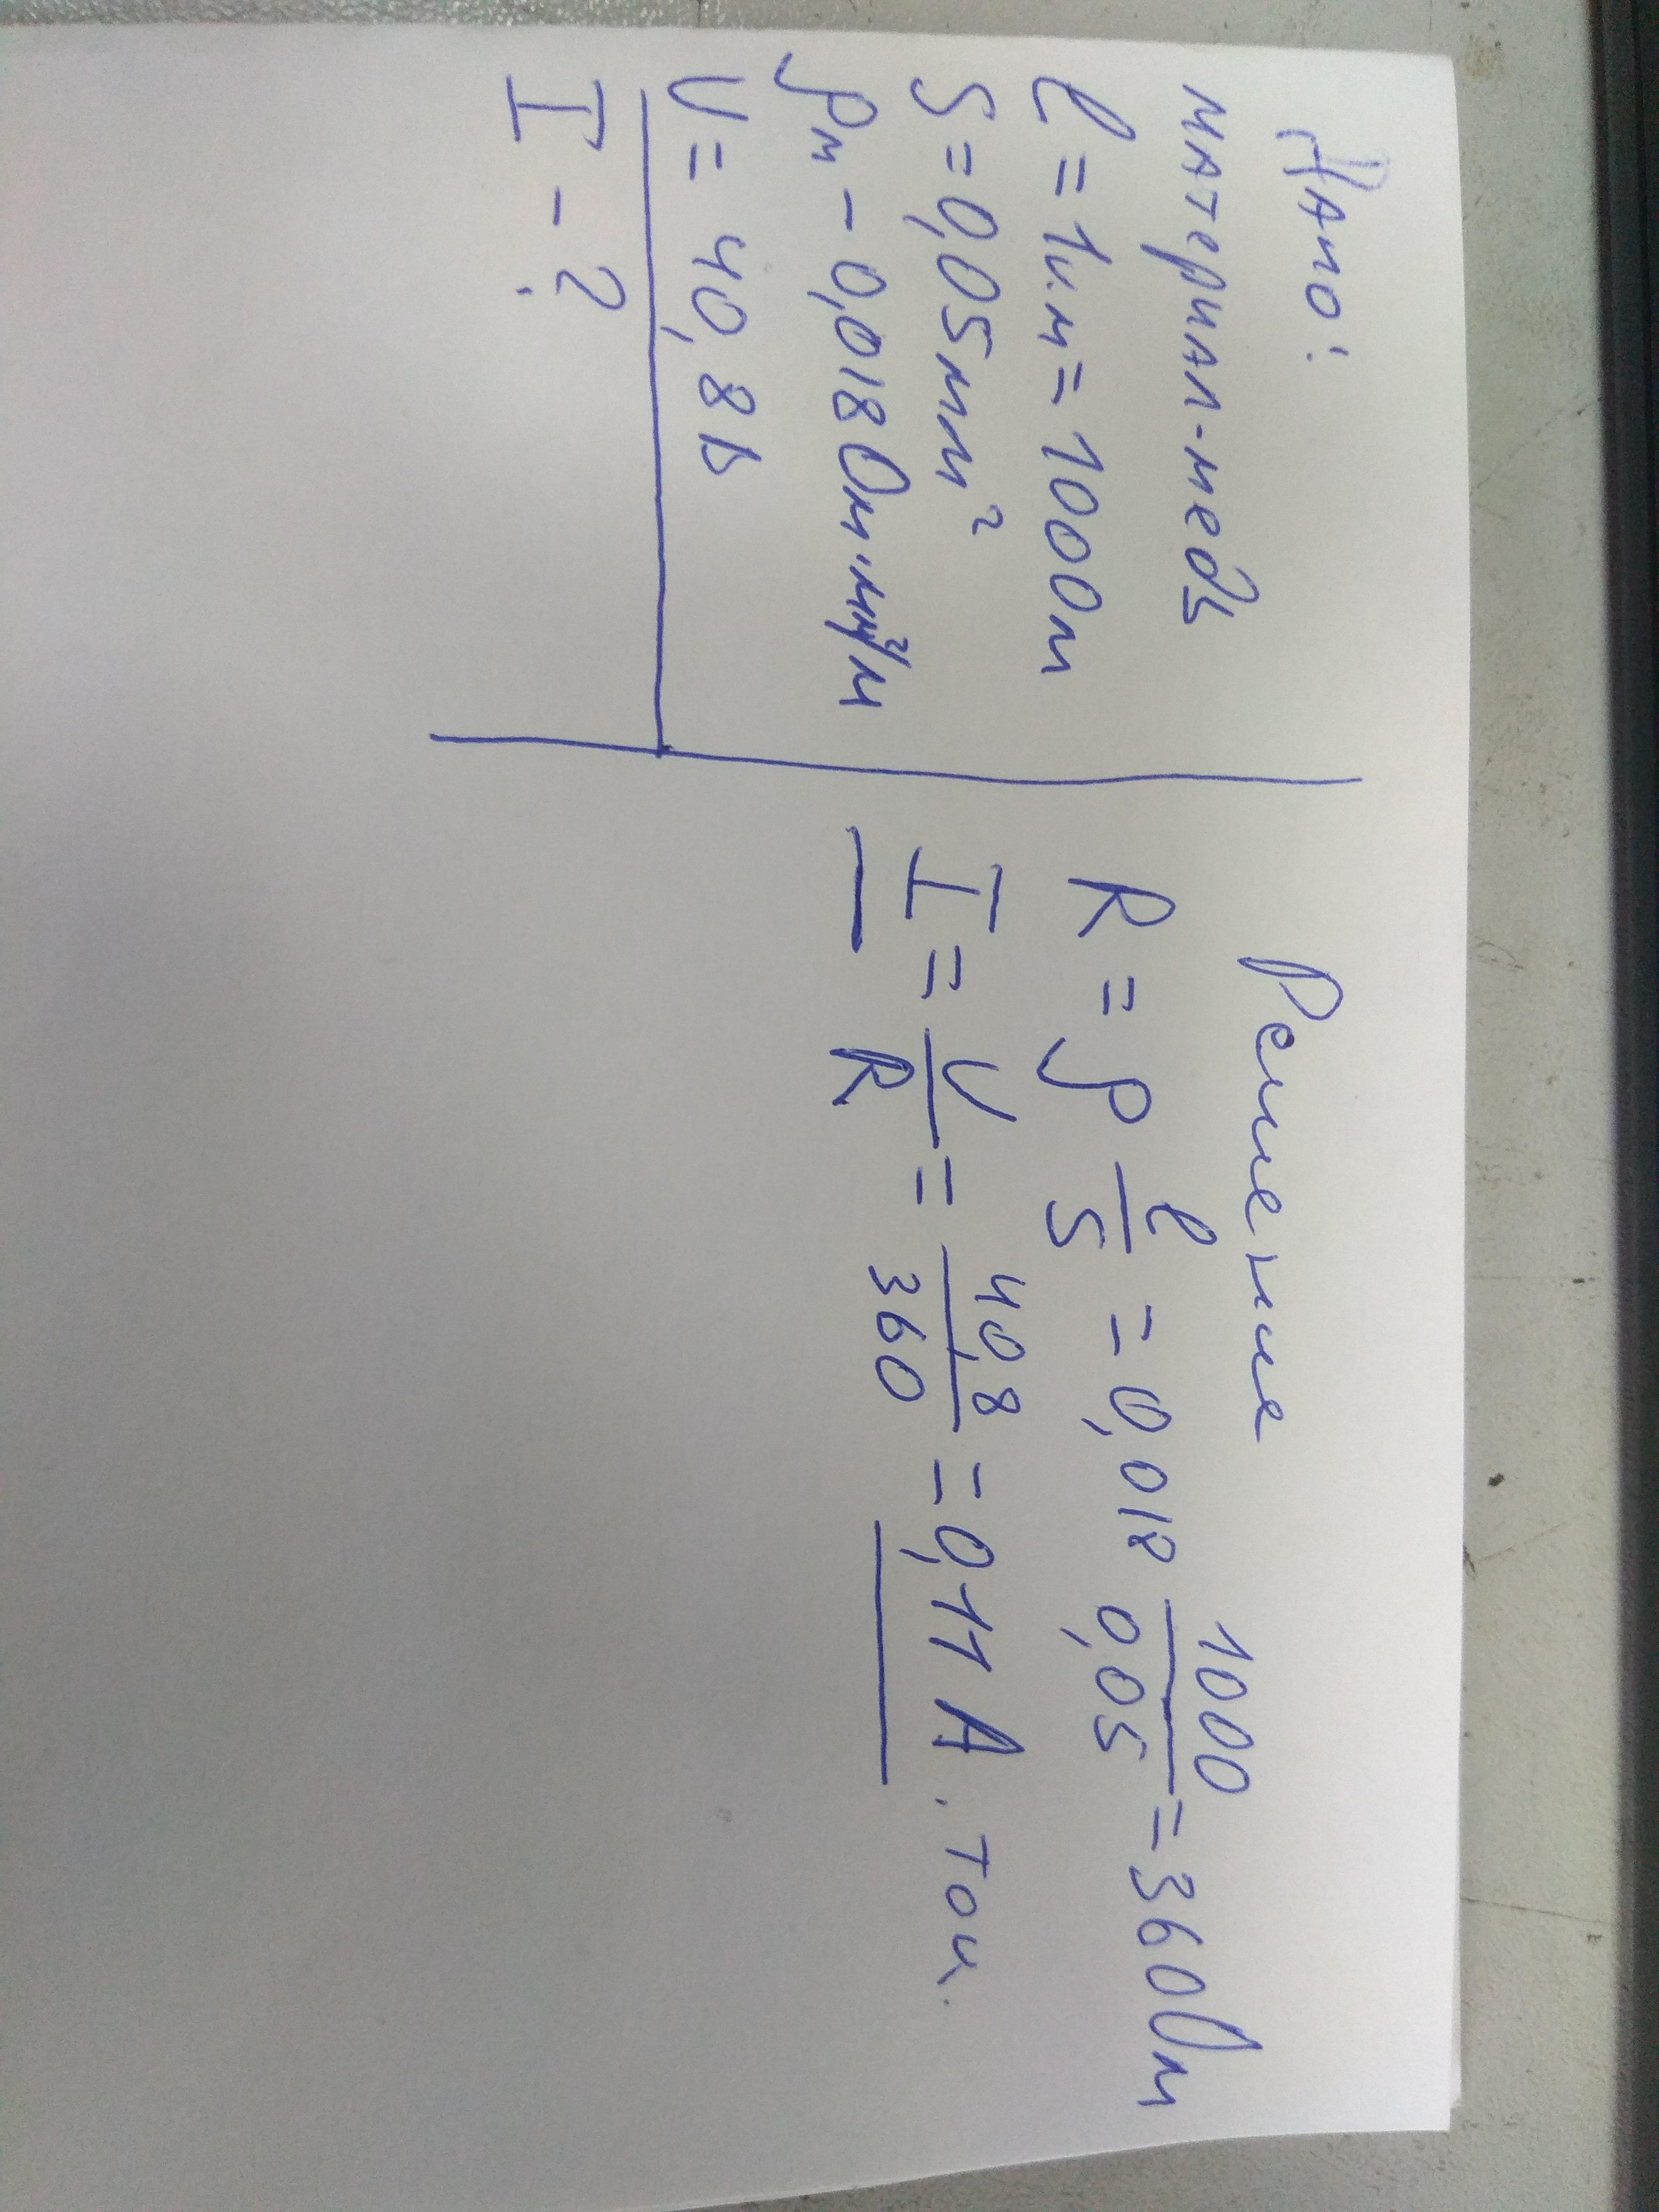 Дано:
материал-медь
l = 1км = 1000м
S = 0,05мм²
ρм - 0,018 Ом·мм²/м
U = 40,8В
I - ?
Решение
R = ρ l/S = 0,018 1000/0,05 = 360 Ом
I = U/R = 40,8/360 = 0,11 А. ток.